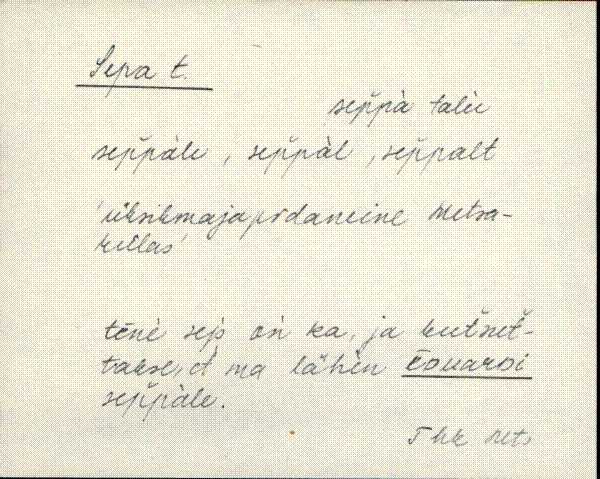 Sepa t.
sep̌pà talù
sep̌pàle, sep̌pàl, sep̌palt
'üksikmajapidamine Metsa-
küllas'
tēnè sep̀ oǹ ka, ja kut̆set̆-
takse, et ma lähèn ēduardi
sep̌pàle.
Thk Met.